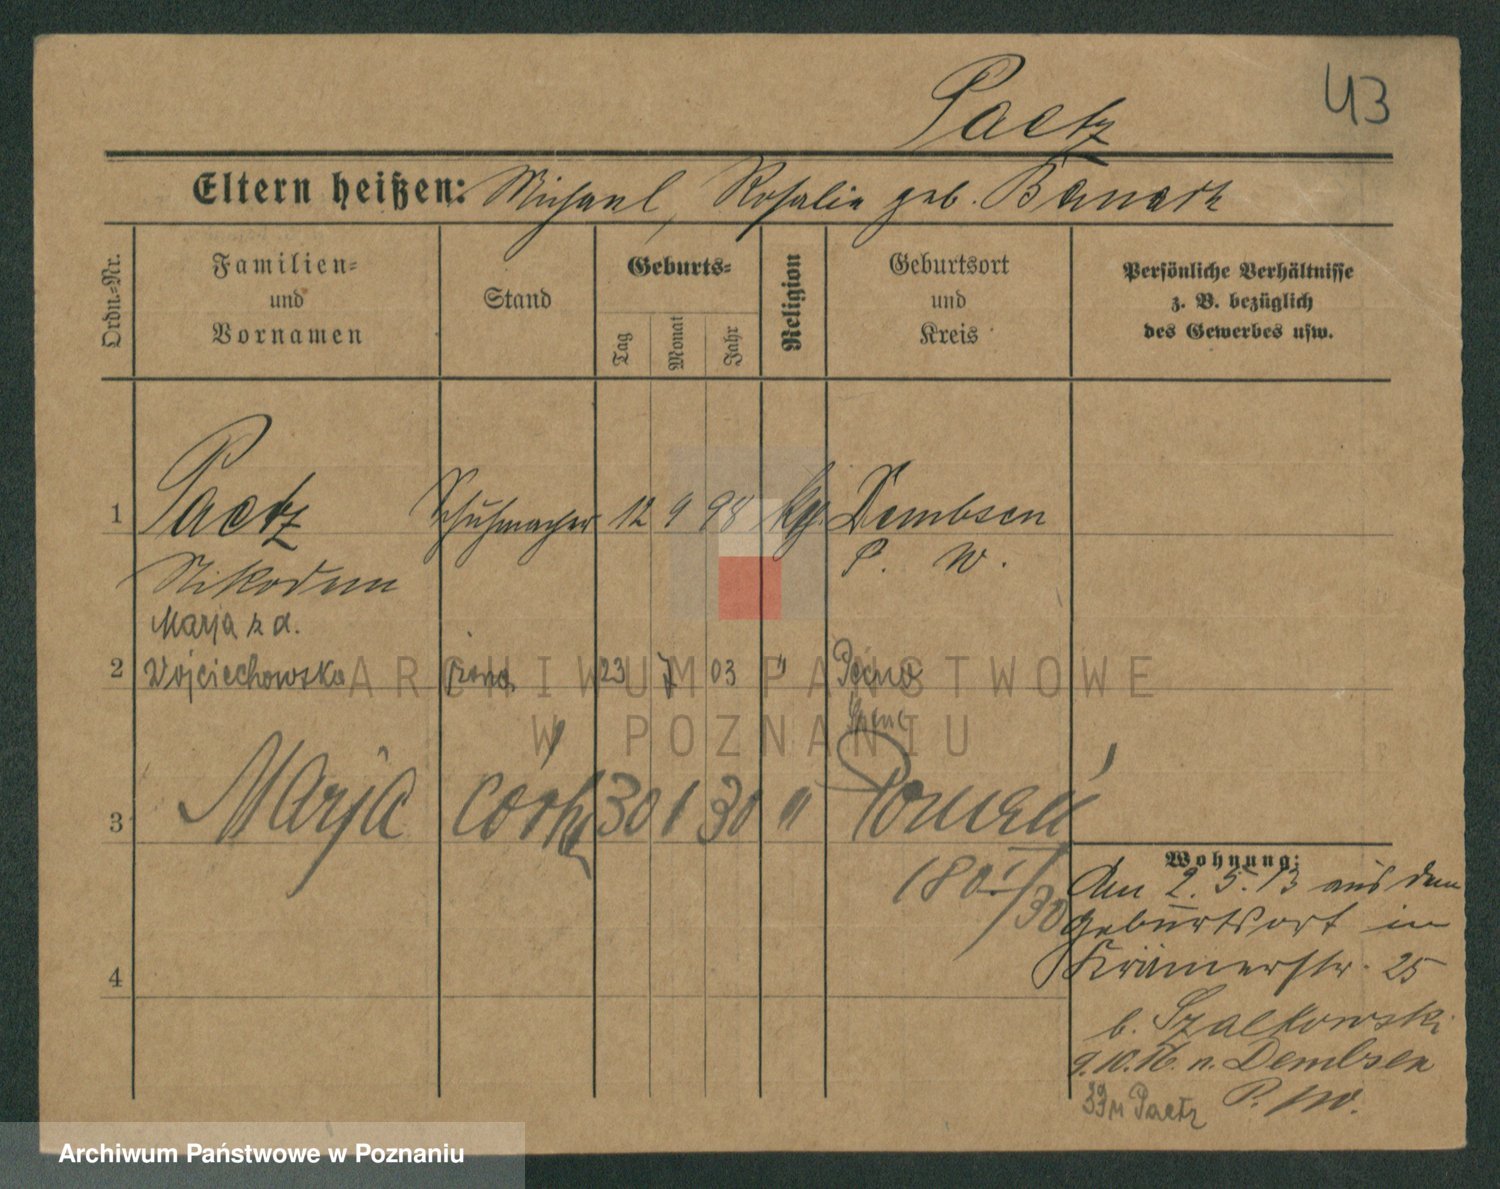 43
Paetz
Eltern heißen: Michael, Rosalie geb. Banach
Ordn.-Nr.
Familien- und Vornamen
Stand
Geburts-
Tag Monat Jahr
Religion
Geburtsort und Kreis
Persönliche Verhältnisse z. B. bezüglich des Gewerbes usw.
1 Paetz Schuhmacher 12 9 98 kg. Dembsen
Nikodem P. W.
Marja z d.
2 Wojciechowska żona 23 7 03 "
3 Marja córka 30 1 30 " Poznań
180 I/30
4
Wohnung:
Am 2.5.13 aus dem
Geburtsort in
Krämerstr. 25
b. Szalkowski
9.10.16. n. Dembsen
P. W.
Paetz
ARCHIWUM PAŃSTWOWE
W POZNANIU
Archiwum Państwowe w Poznaniu